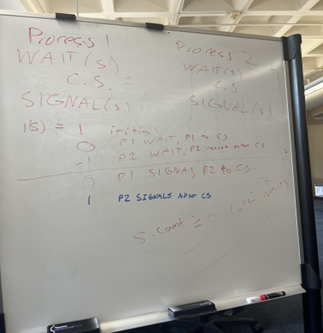 Process 1
WAIT(s)
C.S.
SIGNAL(s)
Process 2
WAIT(s)
C.S
SIGNAL(s)
1(s) = 1 initial
0 P1 WAIT, P1 to CS
-1 P2 WAIT, P2 CS
0 P1 SIGNAL, P2 to CS
1 P2 SIGNALS After CS
s.count ≥ 0